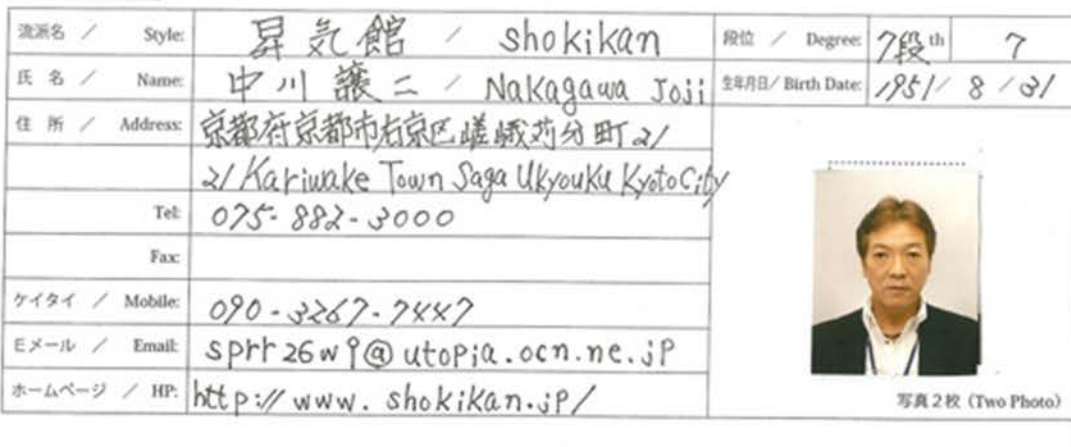 流派名 / Style: 昇気館 / shokikan 段位 / Degree: 7段 th 7
氏名 / Name: 中川 譲二 / Nakagawa Joji 生年月日/ Birth Date: 1951/ 8 / 31
住所 / Address: 京都府京都市右京区嵯峨苅分町21
21 Kariwake Town Saga Ukyouku Kyoto City
Tel: 075-882-3000
Fax:
ケイタイ / Mobile: 090-3267-7447
Eメール / Email: sprr26w9@utopia.ocn.ne.jp
ホームページ / HP: http://www.shokikan.jp/
写真2枚 (Two Photo)